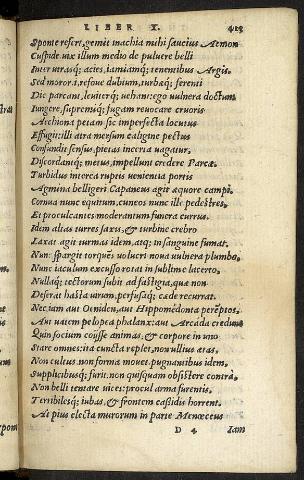 LIBER X.
Sponte refert, gemit inachia mihi saucius Aemon
Cuspide. vix illum medio de pulvere belli
Inter utrasq; acies, iamiamq; tenentibus Argis.
Sed moror. i, refove dubium, turbaq; furenti
Dic parcant, leviterq; vehant. ego vulnera doctum
Iungere, supremiq; fugam revocare cruoris
Aechiona petam. sic imperfecta locutus
Effugit: illi atra mersum caligine pectus
Confudit sensus, pietas incerta vagatur,
Discordantq; metus, impellunt credere Parcæ.
Turbidus interea ruptis venientia portis
Agmina belligeri Capaneus agit aequore campi,
Cornua nunc equitum, cuneos nunc ille pedestres,
Et proculcantes moderantum funera currus.
Idem altas turres saxis, & turbine crebro
Laxat. agit turmas idem, atq; in sanguine fumat.
Nunc spargit torques volucri nova vulnera plumbo,
Nunc iaculum excusso rotat in sublime lacerto,
Nullaq; tectorum subit ad fastigia, quæ non
Deferat hasta virum, perfusaq; cæde recurrat.
Nec iam aut Oeniden, aut Hippomedonta peremptos,
Aut vatem pelopea phalanx: aut Arcada credunt
Quin socium coisse animas, & corpore in uno
Stare omnes: ita cuncta replet. non ullius ætas,
Non cultus, non forma movet. pugnantibus idem,
Supplicibusq; furit. non quisquam obsistere contra,
Non belli tentare vices: procul arma furentis,
Terribilesq; iubas, & frontem cassidis horrent.
At pius electa murorum in parte Menœceus
D 4 Iam